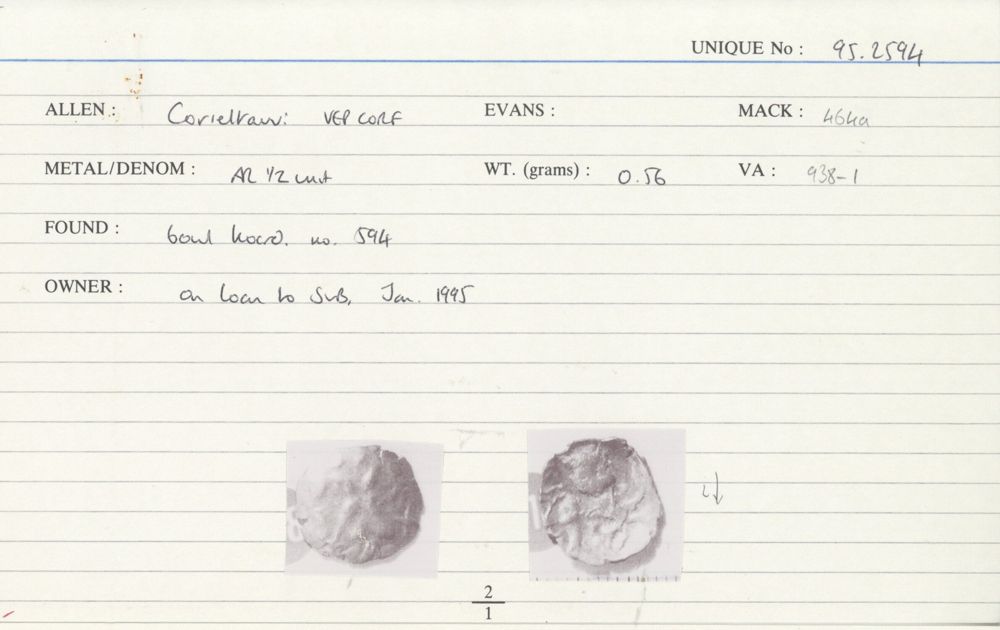 UNIQUE No : 95.2594
ALLEN : Corieltauvi VEP CORF EVANS : MACK : 464a
METAL/DENOM : AR 1/2 unit WT. (grams) : 0.56 VA : 938-1
FOUND : bowl hoard. no. 594
OWNER : on loan to SUB, Jan. 1995
↓
2
1